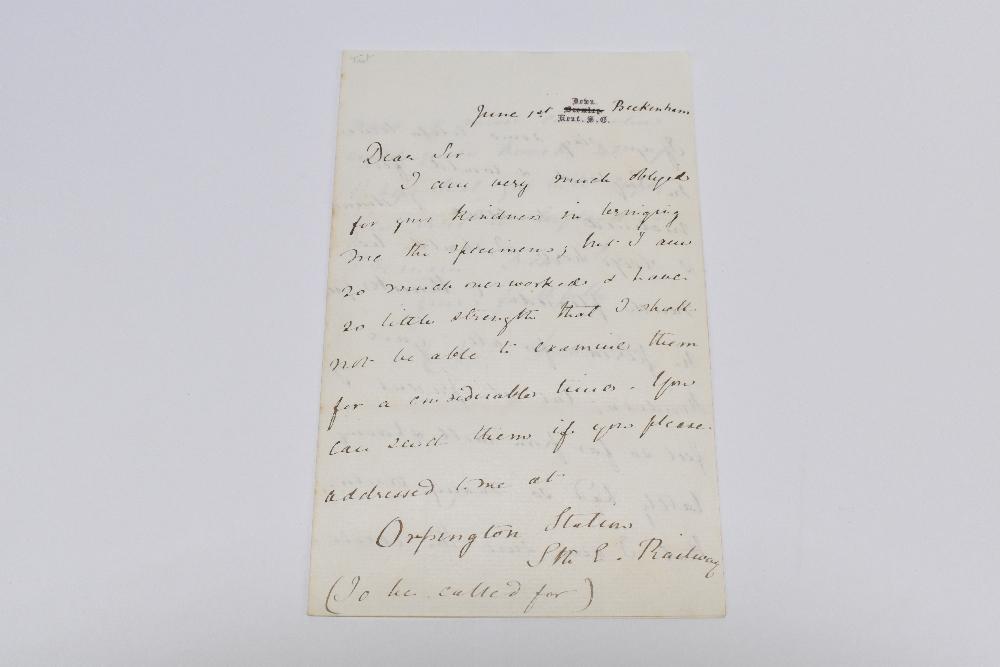 June 1st
Down.
Bromley. Beckenham
Kent. S.E.
Dear Sir
I am very much obliged
for your kindness in bringing
me the specimens; but I am
so much overworked & have
so little strength that I shall
not be able to examine them
for a considerable time. You
can send them if you please
addressed to me at
Orpington Station
Sth E. Railway
(To be called for)